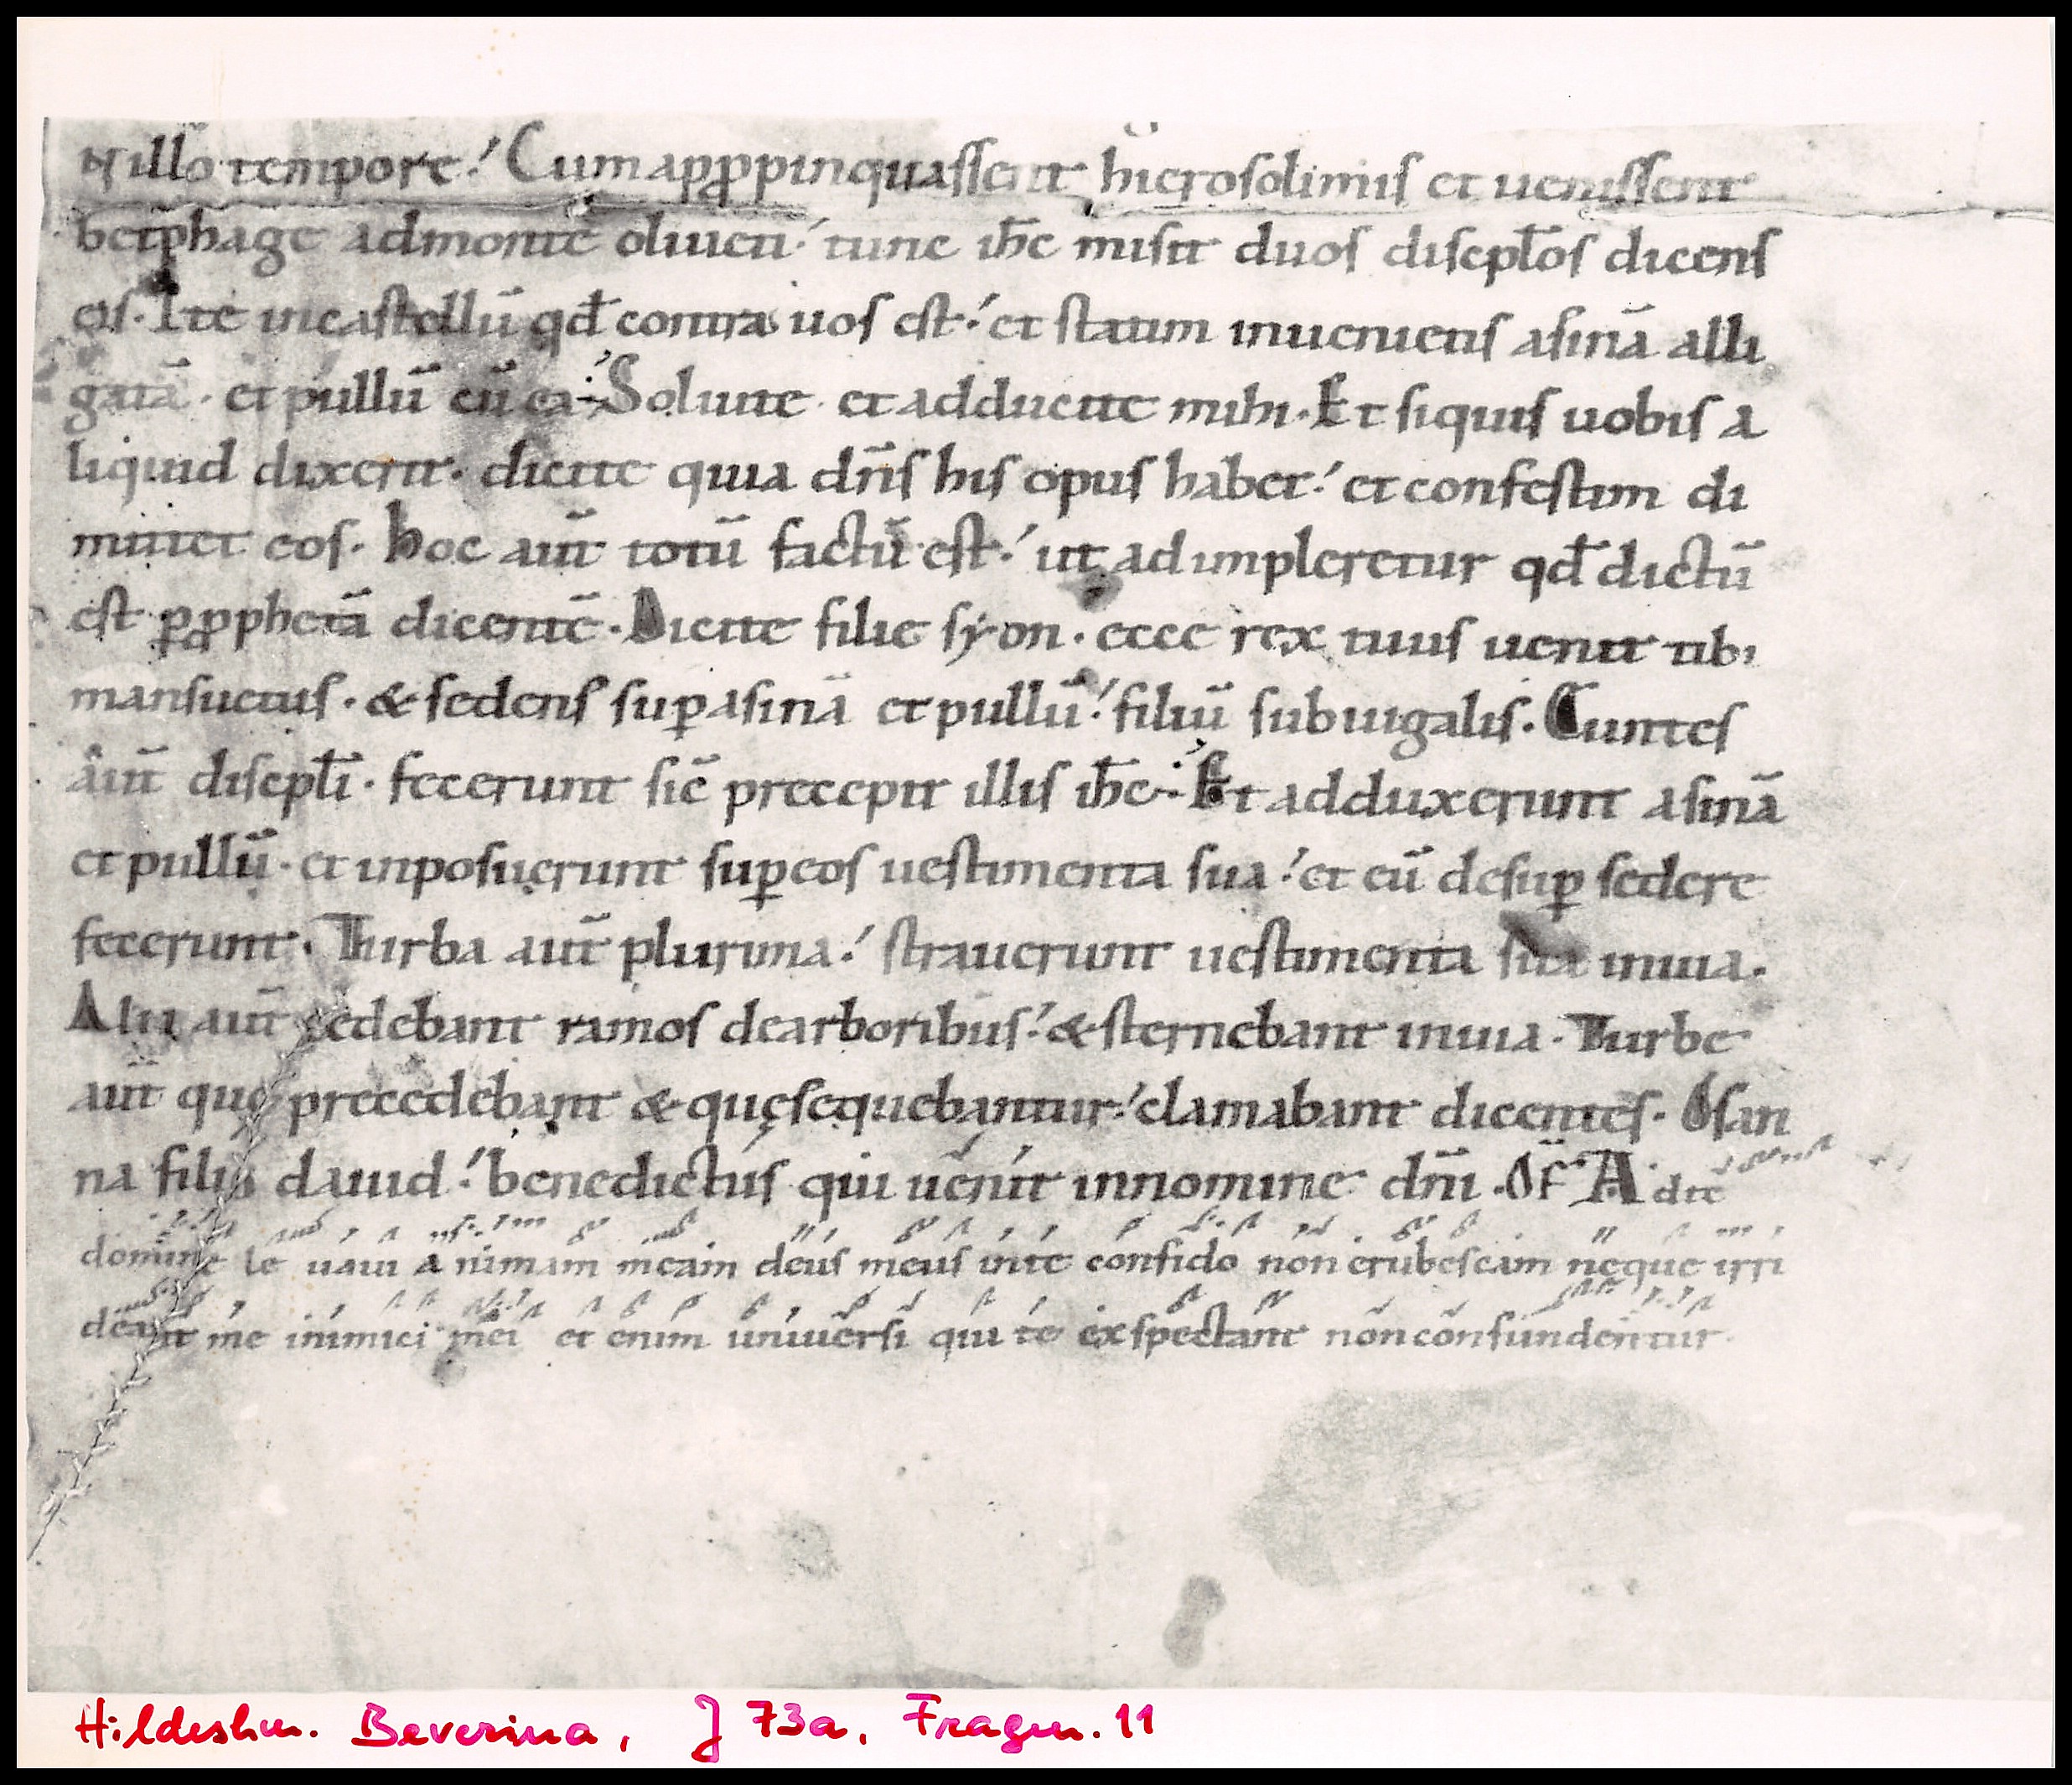 N illo tempore! Cum appropinquassent hierosolimis et uenissent
betphage admontē oliueti! tunc ih̄c misit duos discipl̄os dicens
eis. Ite incastellū qd̄ contra uos est! et statim inuenietis asinā alli
gatā. et pullū cū ea. Soluite et adducite mihi. Et siquis uobis a
liquid dixerit. dicite quia dn̄s his opus habet! et confestim di
mittet eos. hoc aut̄ totū factū est! ut adimpleretur qd̄ dictū
est ꝑ ꝓphetā dicentē. Dicite filie syon. ecce rex tuus uenit tibi
mansuetus. & sedens suꝑ asinā et pullū! filiū subiugalis. Euntes
aut̄ discipl̄i. fecerunt sic̄ precepit illis ih̄c. Et adduxerunt asinā
et pullū. et inposuerunt suꝑ eos uestimenta sua! et eū desuꝑ sedere
fecerunt. Turba aut̄ plurima! strauerunt uestimenta sua inuia.
Alii aut̄ cedebant ramos dearboribus! & sternebant inuia. Turbe
aut̄ quę precedebant & quę sequebantur! clamabant dicentes. Osan
na filio dauid! benedictus qui uenit innomine dn̄i. Of̄ Ad te
domine le uaui a nimam meam deus meus inte confido non erubescam neque irri
deant me inimici mei et enim uniuersi qui te exspectant non confundentur.
Hildeshm. Beverina, J 73a, Fragm. 11